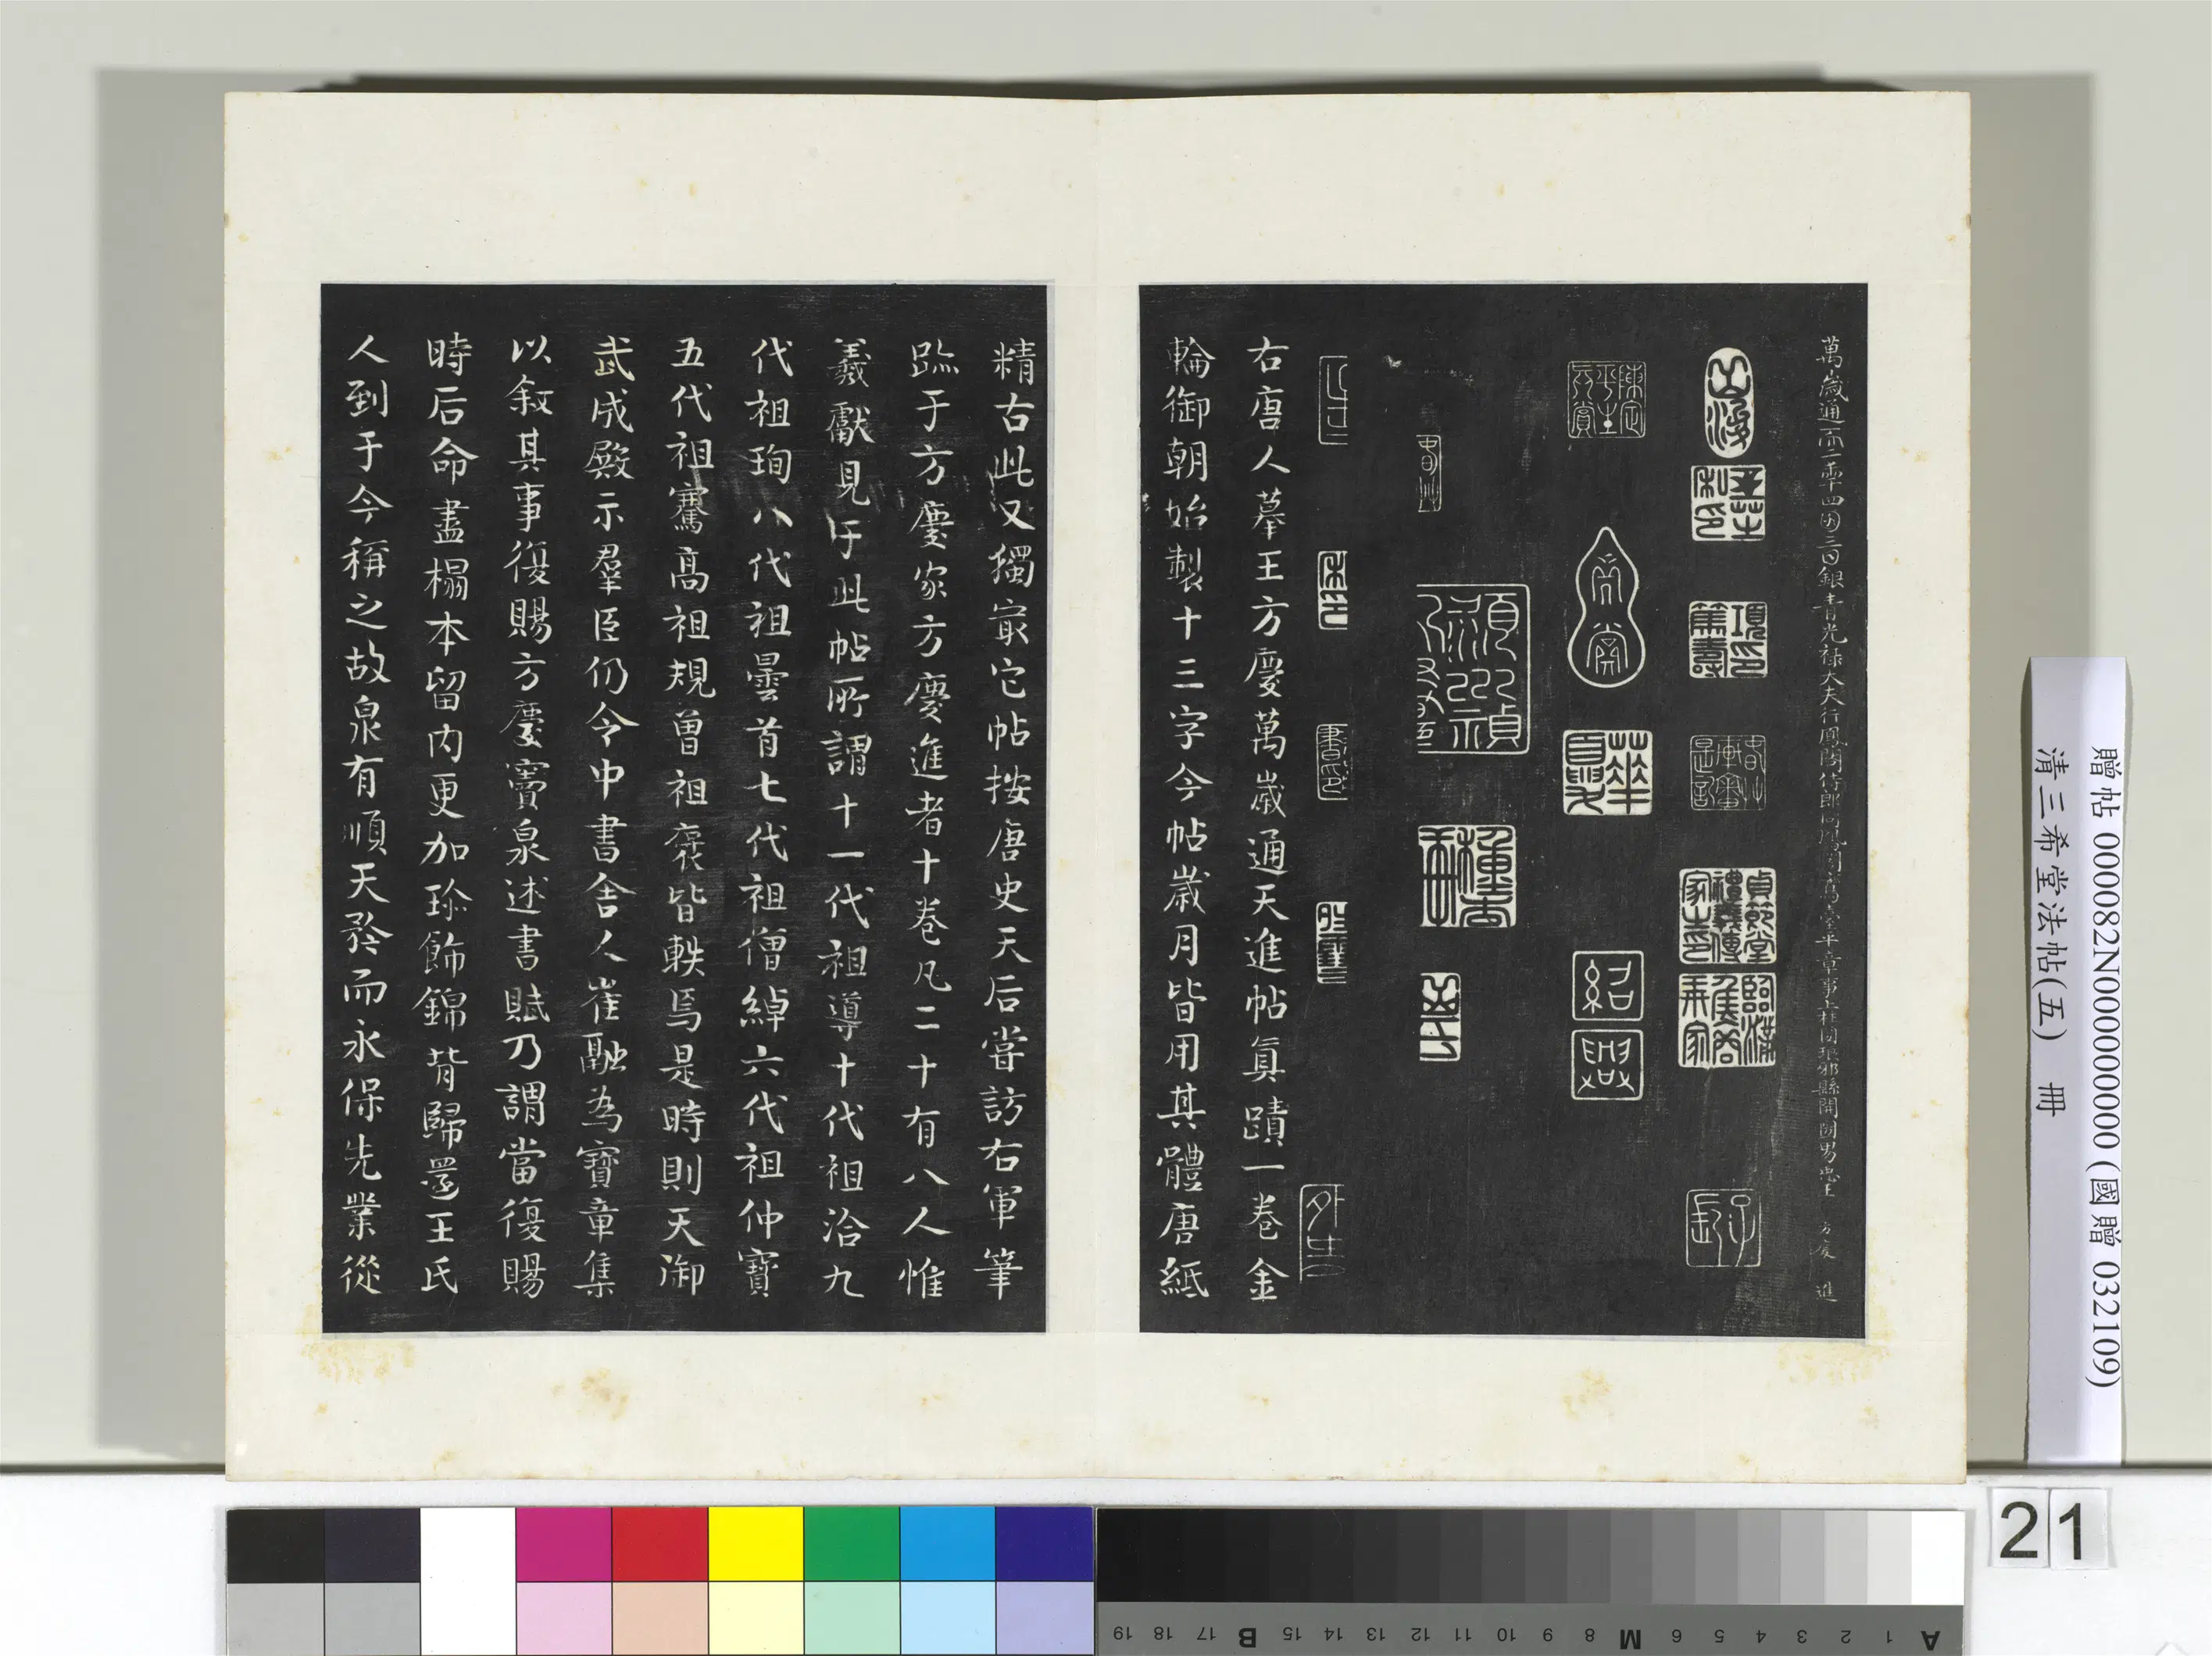 萬歲通天二年四月三日銀青光祿大夫行鳳閣侍郎同鳳閣鸞臺平章事上柱國琅邪縣開國男臣王方慶進
項篤壽印
陳定平生真賞
貞節堂禮義傳家之印
紹興
右唐人摹王方慶萬歲通天進帖真蹟一卷金
輪御朝始製十三字今帖歲月皆用其體唐紙
精古此又獨最它帖按唐史天后嘗訪右軍筆
跡于方慶家方慶進者十卷凡二十有八人惟
羲獻見于此帖所謂十一代祖導十代祖洽九
代祖珣八代祖曇首七代祖僧綽六代祖仲寶
五代祖騫高祖規曾祖褒皆軼焉是時則天御
武成殿示羣臣仍令中書舍人崔融為寶章集
以敘其事復賜方慶竇泉述書賦乃謂當復賜
時后命盡榻本留內更加珍飾錦背歸還王氏
人到于今稱之故泉有順天矜而永保先業從
贈帖 000082N000000000 (國贈 032109)
清三希堂法帖(五) 冊
21
A 1 2 3 4 5 6 M 8 9 10 11 12 13 14 15 B 17 18 19